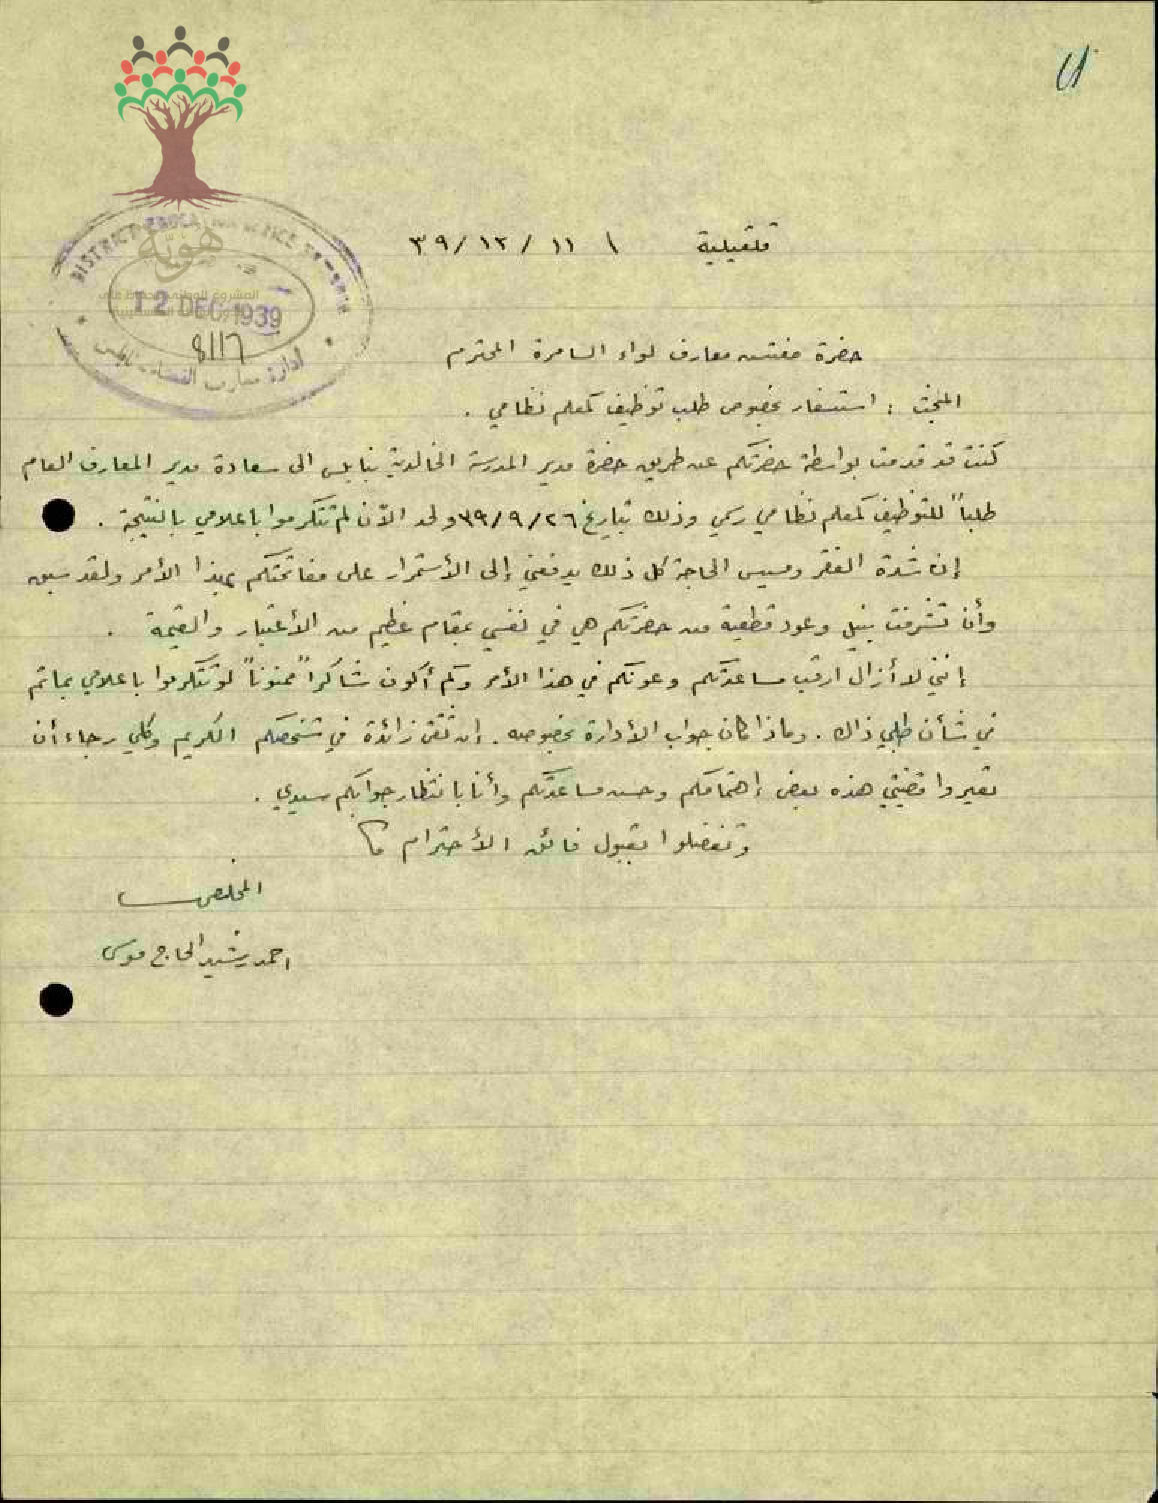 قلقيلية \ ١١ / ١٢ / ٣٩
DISTRICT EDUCATION OFFICE
هوية
المشروع الوطني للحفاظ على
12 DEC. 1939
8117
ادارة معارف القضاء نابلس
حضرة مفتش معارف لواء السامرة المحترم
المبحث : استفسار بخصوص طلب توظيف كمعلم نظامي .
كنت قد قدمت بواسطة حضرتكم عن طريق حضرة مدير المدرسة الخالدية بنابلس الى سعادة مدير المعارف العام
طلباً للتوظيف كمعلم نظامي رسمي وذلك بتاريخ ٢٦ / ٩ / ٣٩ ولحد الآن لم تتكرموا باعلامي بالنتيجة .
إن شدة الفقر ومسيس الحاجة كل ذلك يدفعني إلى الأستمرار على مفاتحتكم بهذا الأمر ولقد سبق
وأن تشرفت بنيل وعود قطعية من حضرتكم هي في نفسي بمقام عظيم من الأعتبار والقيمة .
إنني لا أزال ارقب مساعدتكم وعونكم في هذا الأمر وكم أكون شاكراً ممنوناً لو تتكرموا باعلامي بما تم
في شأن طلبي ذاك . وماذا كان جواب الأدارة بخصوصه . إن ثقتي زائدة في شخصكم الكريم وكلي رجاء أن
تعيروا قضيتي هذه بعض إهتمامكم وحسن مساعدتكم وأنا بانتظار جوابكم سيدي .
وتفضلوا بقبول فائق الأحترام
المخلص
احمد رشيد الحاج موسى